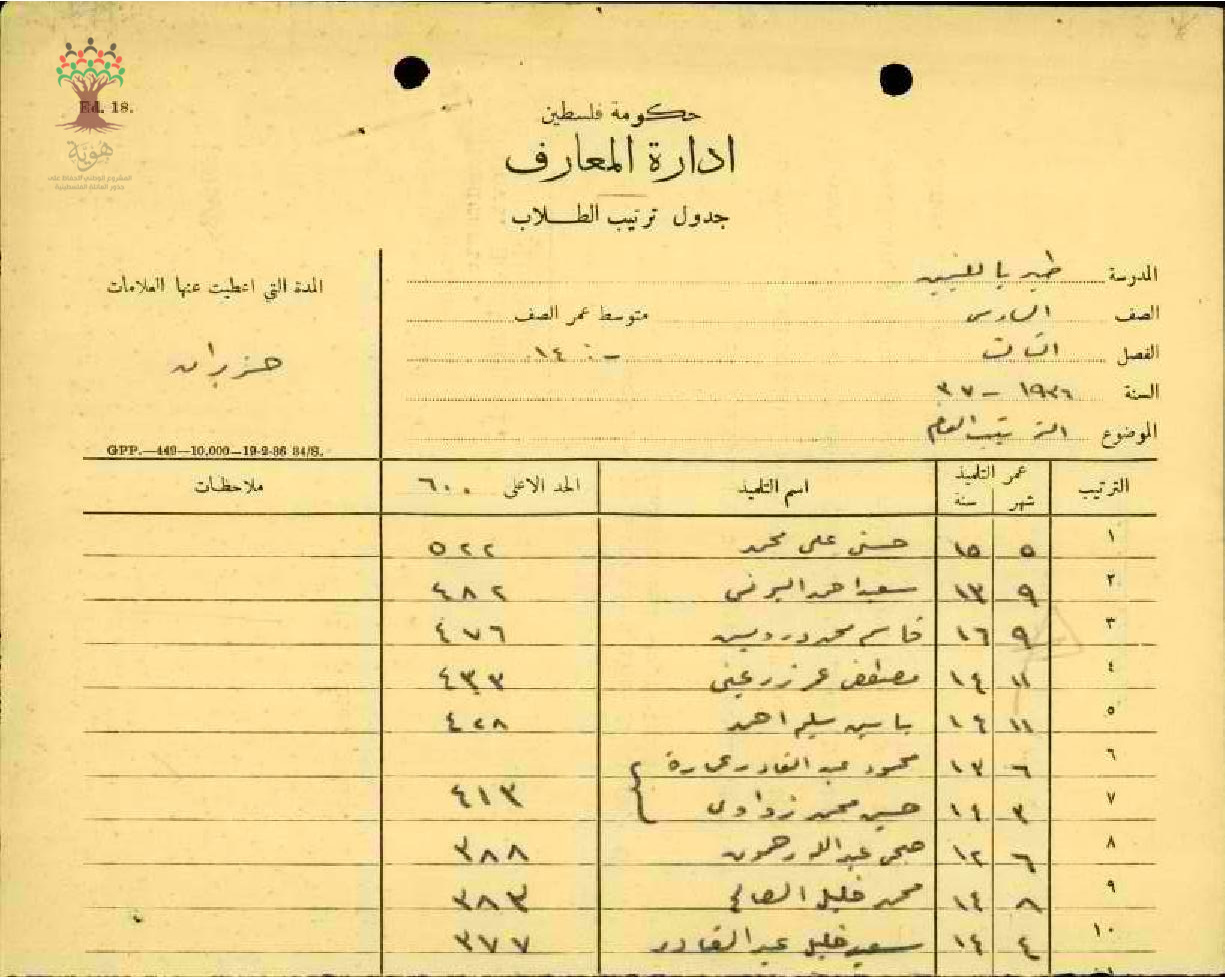 Ed. 18.
هوية
المشروع الوطني للحفاظ على
جذور العائلة الفلسطينية
حكومة فلسطين
ادارة المعارف
جدول ترتيب الطلاب
المدرسة طبريا للبنين
الصف السادس متوسط عمر الصف
الفصل الثالث ١٤
السنة ١٩٣٦ - ٣٧
الموضوع الترتيب العام
المدة التي اعطيت عنها العلامات
حزيران
GPP.—449—10,000—19-2-36 34/S.
الترتيب عمر التلميذ اسم التلميذ الحد الاعلى ٦٠٠ ملاحظات
شهر سنة
١ ٥ ١٥ حسني علي محمد ٥٢٢
٢ ٩ ١٣ سعيد احمد البرنسي ٤٨٢
٣ ٩ ١٦ قاسم محمد درويش ٤٧٦
٤ ١١ ١٤ مصطفى عمر زرعيني ٤٣٣
٥ ١١ ١٤ ياسين سليم احمد ٤٢٨
٦ ٦ ١٣ محمود عبد القادر عمارة
٧ ٣ ١٤ حسين محمد زواوي ٤١٣
٨ ٦ ١٢ صبحي عبدالله رحمون ٣٨٨
٩ ٨ ١٤ محمد خليل الصالح ٣٨٣
١٠ ٤ ١٤ سعيد خليل عبد القادر ٣٧٧